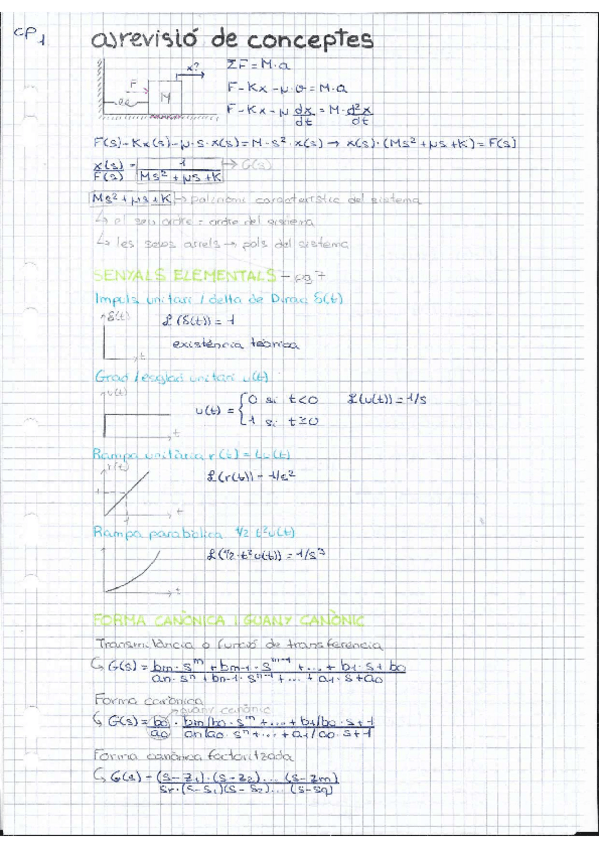 CP1
a) revisió de conceptes
x?
F
M
ΣF = M·a
F - Kx - μ·v = M·a
F - Kx - μ dx/dt = M· d²x/dt
F(s) - Kx(s) - μ·s·x(s) = M·s²·x(s) → x(s)·(Ms² + μs + K) = F(s)
x(s)/F(s) = 1/(Ms² + μs + K) → G(s)
Ms² + μs + K → polinomi característic del sistema
↳ el seu ordre = ordre del sistema
↳ les seves arrels → pols del sistema
SENYALS ELEMENTALS - pg 7
Impuls unitari / delta de Dirac δ(t)
δ(t)
t
ℒ(δ(t)) = 1
existència teòrica
Graó / esglaó unitari u(t)
u(t)
t
u(t) = { 0 si t<0
1 si t≥0
ℒ(u(t)) = 1/s
Rampa unitària r(t) = t·u(t)
r(t)
1
1
t
ℒ(r(t)) = 1/s²
Rampa parabòlica 1/2 t²u(t)
t
ℒ(1/2·t²u(t)) = 1/s³
FORMA CANÒNICA I GUANY CANÒNIC
Transmitància o funció de transferència
↳ G(s) = (bm·s^m + bm-1·s^m-1 + ... + b1·s + b0)/(an·s^n + bn-1·s^n-1 + ... + a1·s + a0)
Forma canònica
guany canònic
↳ G(s) = b0/a0 · (bm/b0·s^m + ... + b1/b0·s + 1)/(an/a0·s^n + ... + a1/a0·s + 1)
Forma canònica factoritzada
↳ G(s) = (s-z1)·(s-z2)...(s-zm)/(sr·(s-s1)(s-s2)...(s-sq))